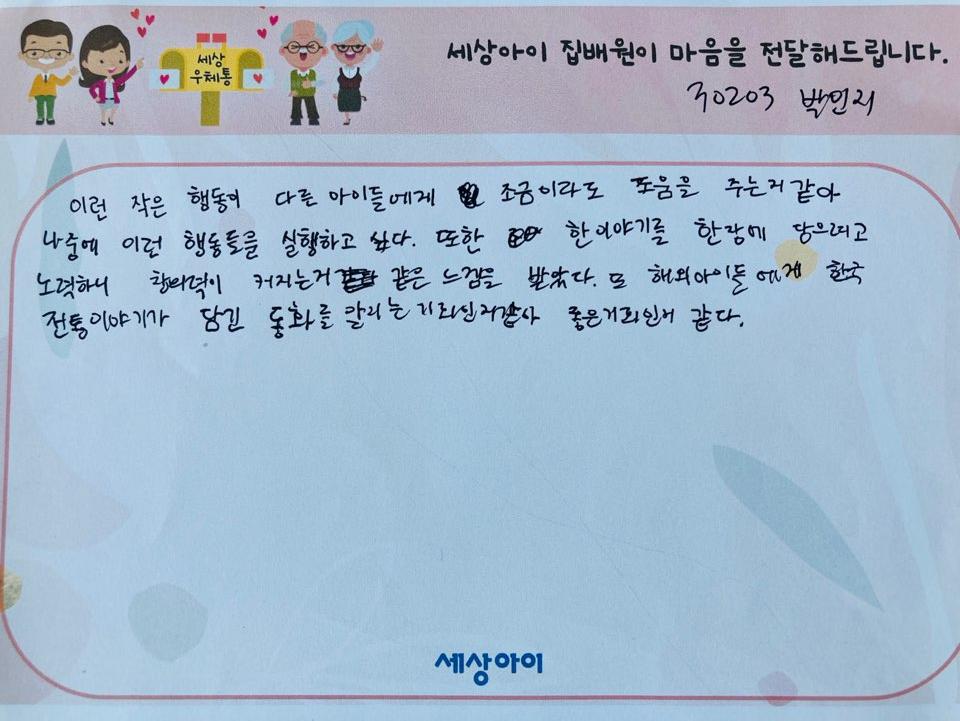 세상
우체통
세상아이 집배원이 마음을 전달해드립니다.
30203 박민지
이런 작은 행동이 다른 아이들에게 조금이라도 도움을 주는거 같아
나중에 이런 행동들을 실행하고 싶다. 또한 한이야기를 한장에 담으려고
노력하니 창의력이 커지는거 같은 느낌을 받았다. 또 해외아이들에게 한국
전통이야기가 담긴 동화를 알리는 기회인거같아 좋은기회인거 같다.
세상아이